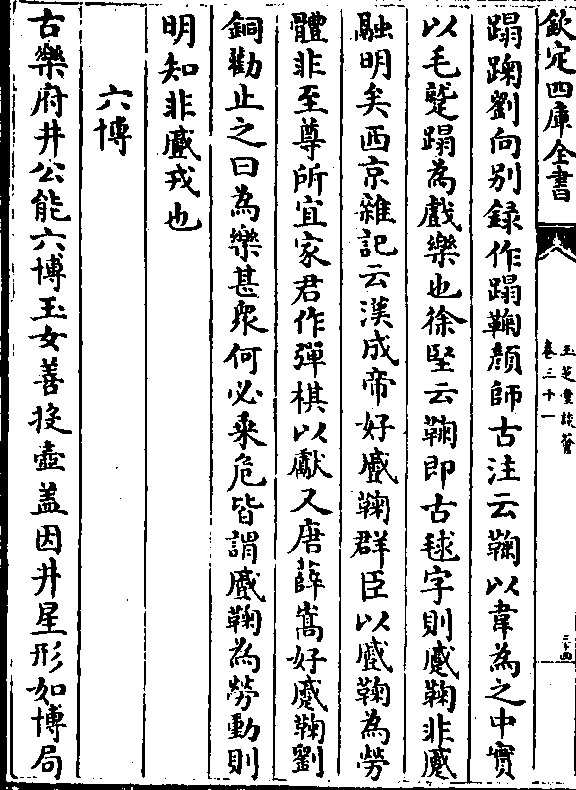 欽定四庫全書
玉芝堂談薈
卷三十一
二十四
蹋踘劉向別録作蹋鞠顔師古注云鞠以韋為之中實
以毛蹵蹋為戲樂也徐堅云鞠即古毬字則蹙鞠非蹙
融明矣西京雜記云漢成帝好蹙鞠群臣以蹙鞠為勞
體非至尊所宜家君作彈棋以獻又唐薛嵩好蹙鞠劉
銅勸止之曰為樂甚衆何必乘危皆謂蹙鞠為勞動則
明知非蹙戎也
六博
古樂府井公能六博玉女善投壺盖因井星形如博局